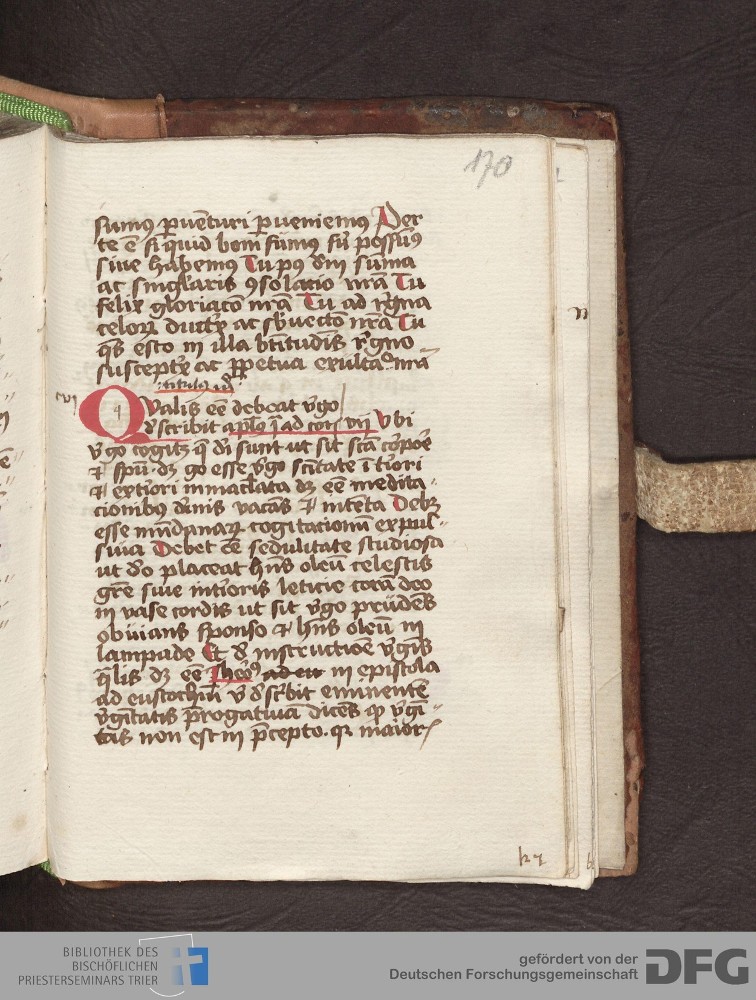 170
sumꝰ ꝑuēturi ꝑueniemꝰ Ader
te ē si quid boni sumꝰ sū possūꝰ
siue habemꝰ Tu pꝰ dm̄ sūma
ac singlaris ꝯsolatio nrā Tu
felix gloriacō nrā Tu ad rͤgna
celoꝝ ductͥx ac sbͧuectō nrā Tu
qs̄ esto in illa btītudīs rͤgno
susceptͥx ac ꝑpetua exultaͨo nrā
titulꝰ
vi
Qualis eē debeat vgͦo
dͤscribit aplō ad corͥ vij Vbi
vgͦo cogitꝫ q̄ di sunt ut sit scā corꝑoē
⁊ spū dꝫ gͦo esse vgͦo scītate ītͥiori
⁊ extͥiori immaclata dꝫ eē medita
cionibꝰ dīnis vacās ⁊ intēta Debꝫ
esse mūdanaꝝ cogitacionū expul
siua Debet eē sedulitate studiosa
ut dͦo placeat hn̄s oleū celestis
grē siue intͥioris leticie corā deo
in vase cordis ut sit vgͦo prudēs
obuians sponso ⁊ hn̄s oleū in
lampade Et dͤ instructiōe vgͥis
q̄lis dꝫ eē Jheͦoꝰ in epistola
ad eustochiū v dͤscͥbit eminentē
vgͥitatis p̄rogatiuā dicēs ꝙ vgͥi
tas non est in p̄cepto. qꝛ maior
BIBLIOTHEK DES
BISCHÖFLICHEN
PRIESTERSEMINARS TRIER
gefördert von der
Deutschen Forschungsgemeinschaft
DFG